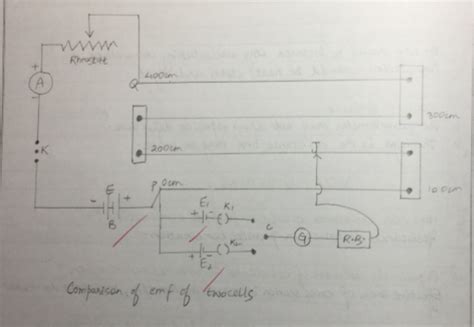 Rheostat
A
+
-
Q
400cm
300cm
200cm
100cm
K
E
- +
B
P 0cm
E1 K1
+ -
E2 K2
+ -
C
G
R.B.
J
Comparison of emf of two cells